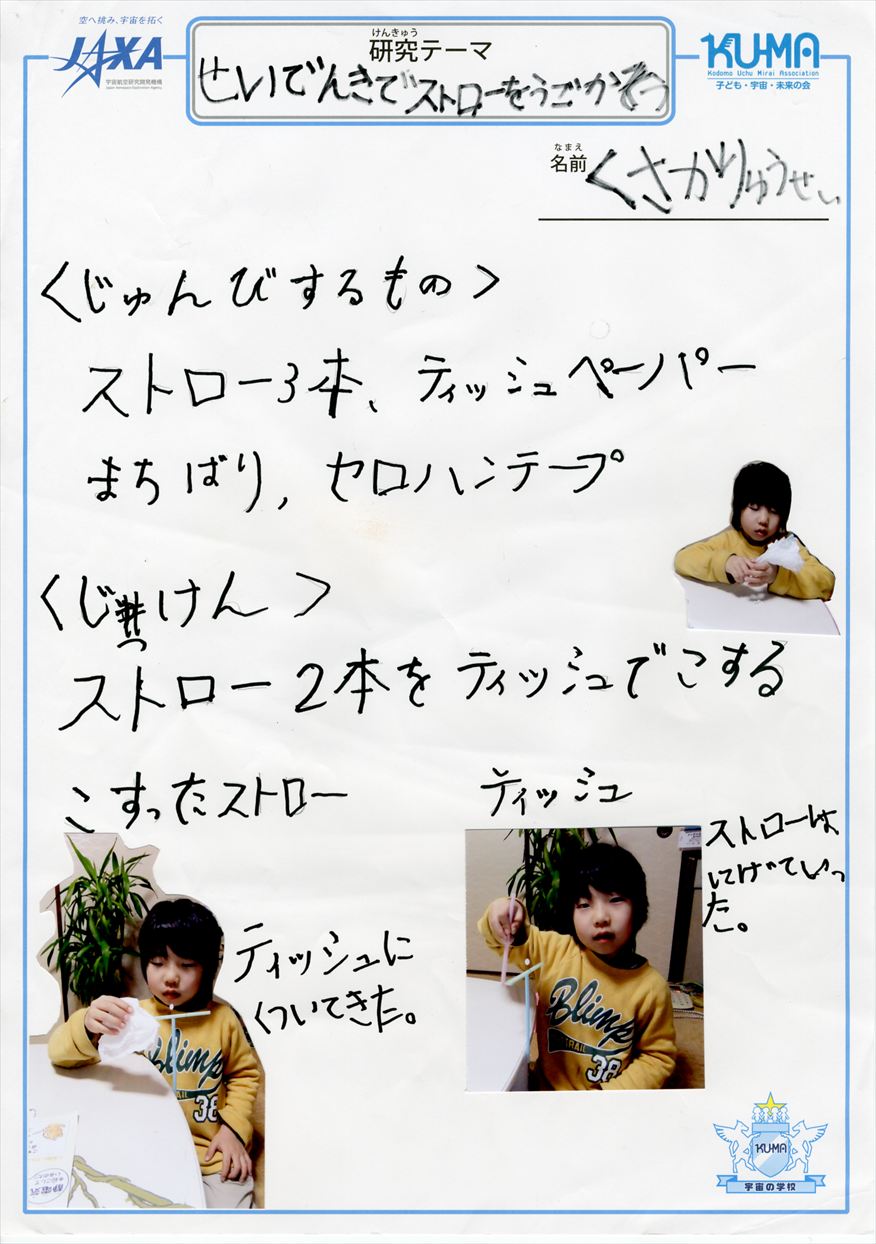 空へ挑み、宇宙を拓く
JAXA
宇宙航空研究開発機構
Japan Aerospace Exploration Agency
けんきゅう
研究テーマ
せいでんきでストローをうごかぞう
KU-MA
Kodomo Uchu Mirai Association
子ども・宇宙・未来の会
なまえ
名前 くさかりゅうせい
<じゅんびするもの>
ストロー3本、ティッシュペーパー
まちばり,セロハンテープ
<じっけん>
ストロー2本をティッシュでこする
こすったストロー
ティッシュ
ストローは
にげていっ
た。
ティッシュに
くついてきた。
Blimp
TRAIL
38
Blimp
38
静電気
KU-MA
宇宙の学校